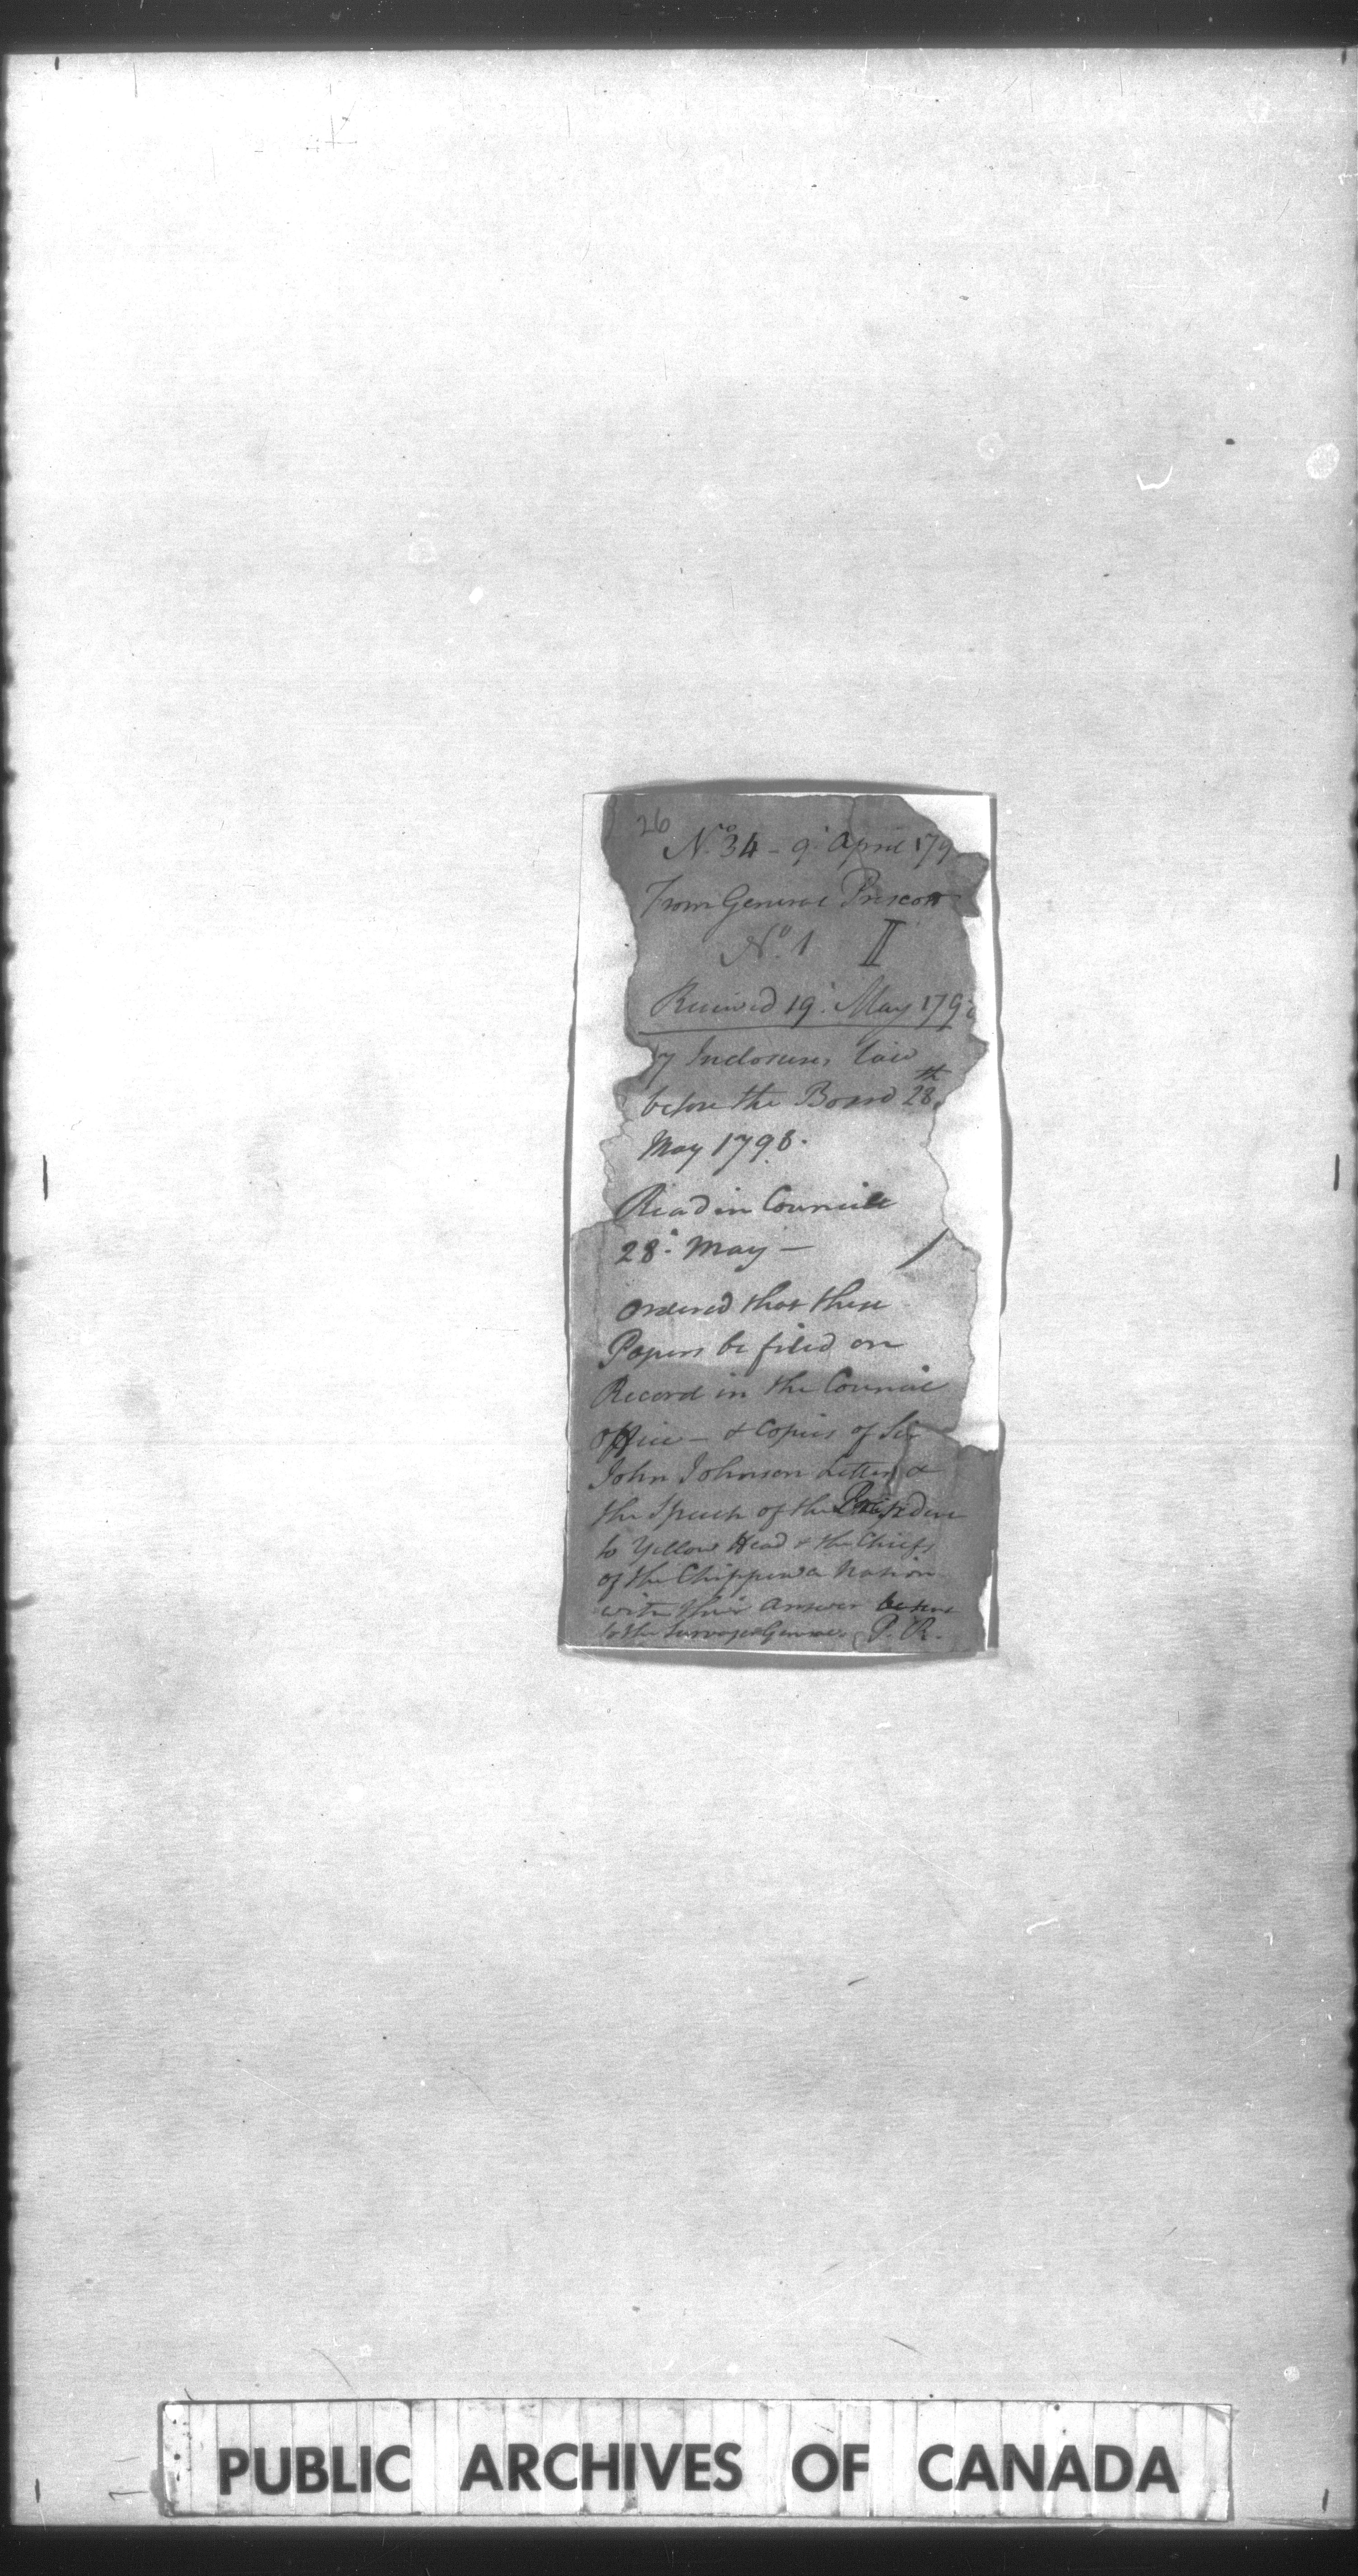 26
No. 34 - 9. April 179
From General Prescott
No. 1 II
Received 19. May 179
7 Inclosures laid
before the Board 28th
May 1798.
Read in Council
28. May —
Ordered that these
Papers be filed on
Record in the Council
Office - & Copies of Sir
John Johnson Letter &
the Speech of the President
to Yellow Head & the Chiefs
of the Chippewa Nation
with their Answer be sent
to the Surveyor General P. R.
PUBLIC ARCHIVES OF CANADA